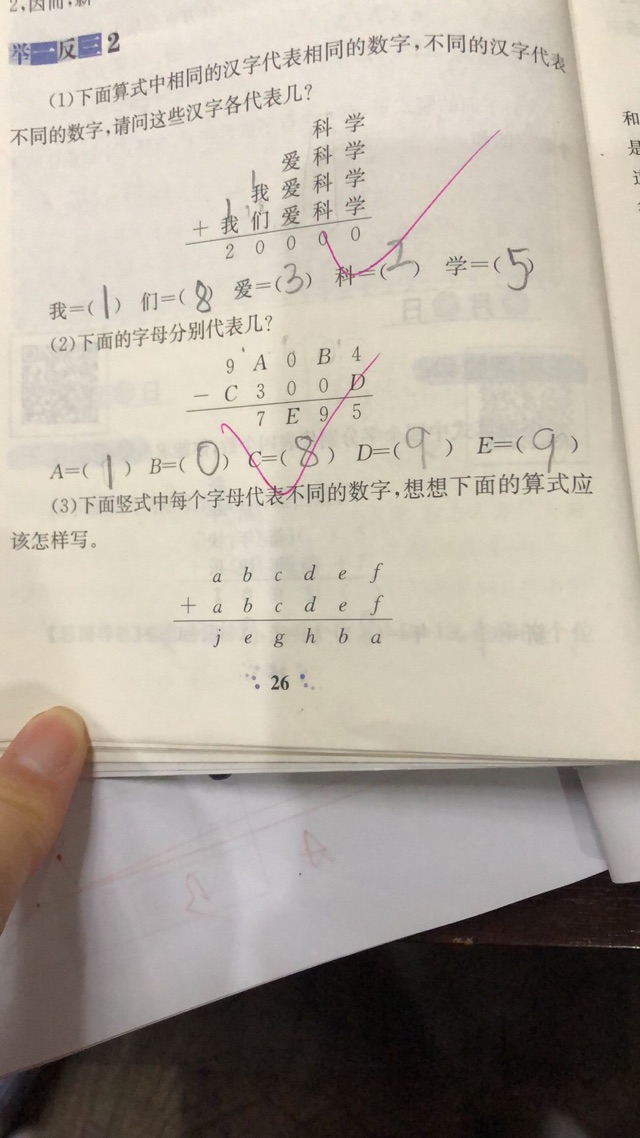 2,因而,新
举一反三 2
(1)下面算式中相同的汉字代表相同的数字,不同的汉字代表
不同的数字,请问这些汉字各代表几?
科 学
爱 科 学
1
我 爱 科 学
1
+ 我 们 爱 科 学
2 0 0 0 0
我=(1) 们=(8) 爱=(3) 科=(2) 学=(5)
(2)下面的字母分别代表几?
9 A 0 B 4
- C 3 0 0 D
7 E 9 5
A=(1) B=(0) C=(8) D=(9) E=(9)
(3)下面竖式中每个字母代表不同的数字,想想下面的算式应
该怎样写。
a b c d e f
+ a b c d e f
j e g h b a
26
和
是
A
B